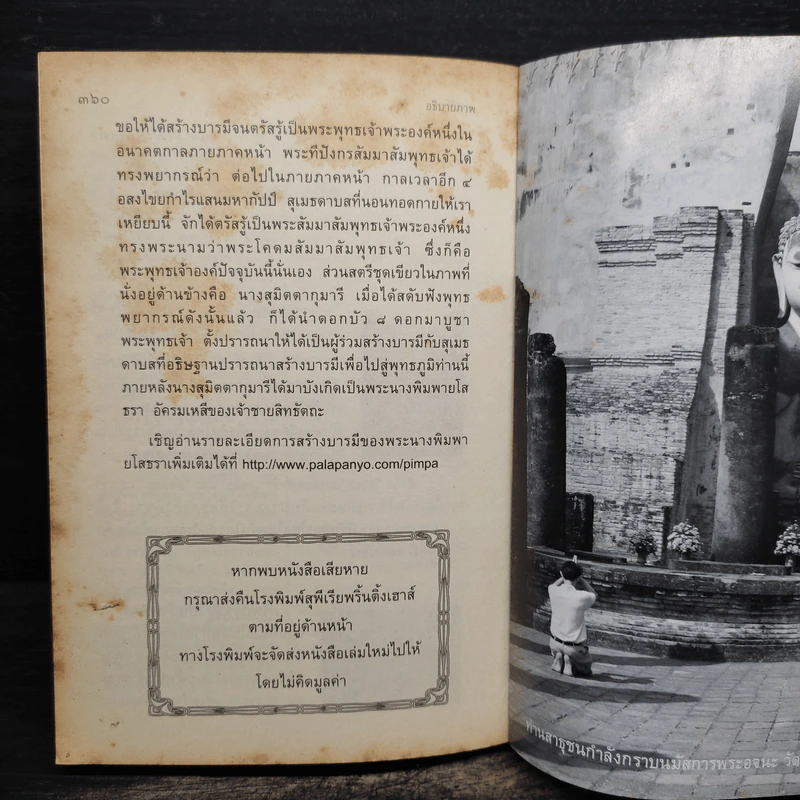 ๓๖๐
อธิบายภาพ
ขอให้ได้สร้างบารมีจนตรัสรู้เป็นพระพุทธเจ้าพระองค์หนึ่งใน
อนาคตกาลภายภาคหน้า พระทีปังกรสัมมาสัมพุทธเจ้าได้
ทรงพยากรณ์ว่า ต่อไปในภายภาคหน้า กาลเวลาอีก ๔
อสงไขยกำไรแสนมหากัปป์ สุเมธดาบสที่นอนทอดกายให้เรา
เหยียบนี้ จักได้ตรัสรู้เป็นพระสัมมาสัมพุทธเจ้าพระองค์หนึ่ง
ทรงพระนามว่าพระโคดมสัมมาสัมพุทธเจ้า ซึ่งก็คือ
พระพุทธเจ้าองค์ปัจจุบันนี้นั่นเอง ส่วนสตรีชุดเขียวในภาพที่
นั่งอยู่ด้านข้างคือ นางสุมิตตากุมารี เมื่อได้สดับฟังพุทธ
พยากรณ์ดังนั้นแล้ว ก็ได้นำดอกบัว ๘ ดอกมาบูชา
พระพุทธเจ้า ตั้งปรารถนาให้ได้เป็นผู้ร่วมสร้างบารมีกับสุเมธ
ดาบสที่อธิษฐานปรารถนาสร้างบารมีเพื่อไปสู่พุทธภูมิท่านนี้
ภายหลังนางสุมิตตากุมารีได้มาบังเกิดเป็นพระนางพิมพายโส
ธรา อัครมเหสีของเจ้าชายสิทธัตถะ
เชิญอ่านรายละเอียดการสร้างบารมีของพระนางพิมพา
ยโสธราเพิ่มเติมได้ที่ http://www.palapanyo.com/pimpa
หากพบหนังสือเสียหาย
กรุณาส่งคืนโรงพิมพ์สุพีเรียพริ้นติ้งเฮาส์
ตามที่อยู่ด้านหน้า
ทางโรงพิมพ์จะจัดส่งหนังสือเล่มใหม่ไปให้
โดยไม่คิดมูลค่า
ท่านสาธุชนกำลังกราบนมัสการพระอจนะ วัด